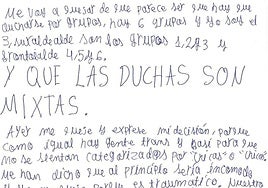 Me voy a quejar de que parece ser que hay que
ducharse por grupos, hay 6 grupos y yo soy el
3, son los grupos 1,2 y 3 y
4,5 y 6.
Y QUE LAS DUCHAS SON
MIXTAS.
Ayer me queje y exprese mi decisión, porque
como igual hay gente trans y pasi para que
no se sientan categorizados por "chicas" o "chicos"
me han dicho que al principio sería incomodo
es traumatico